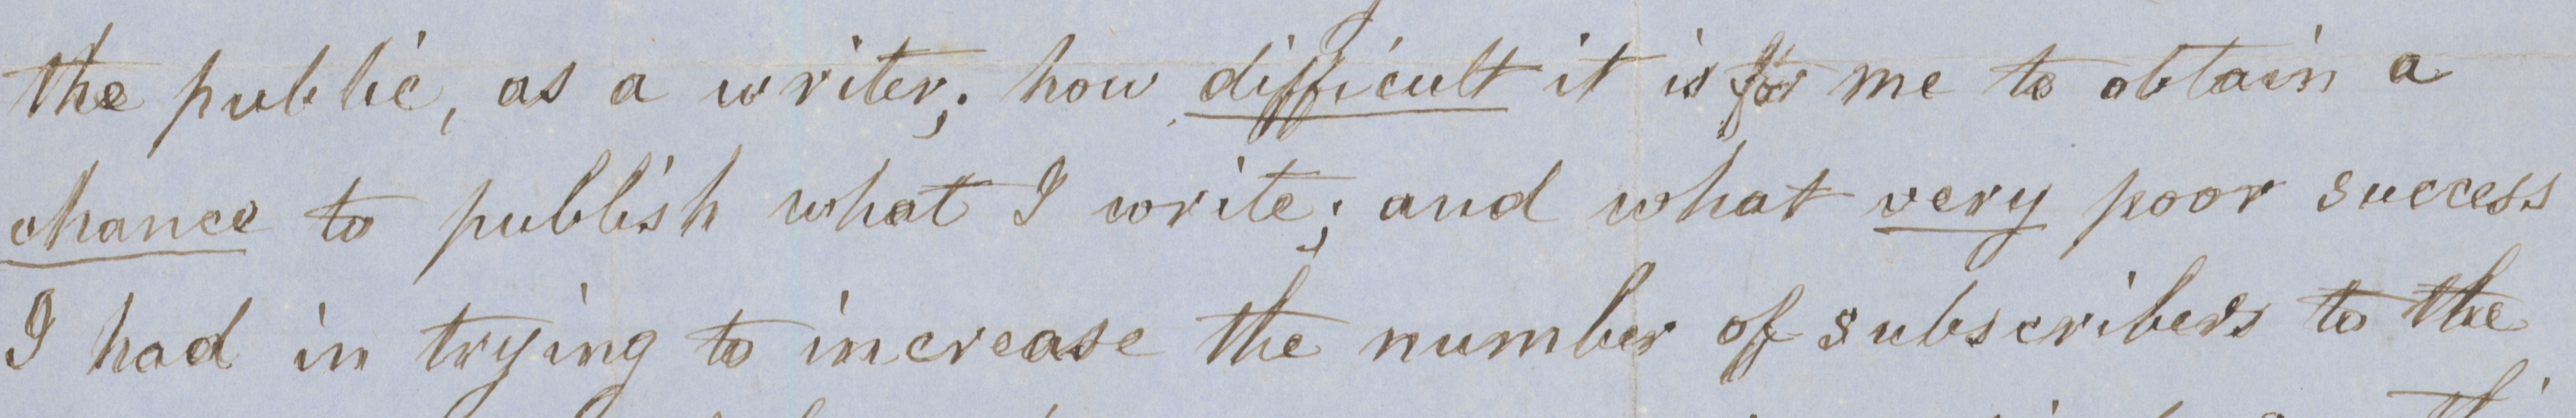 the public, as a writer; how difficult it is for me to obtain a
chance to publish what I write; and what very poor success
I had in trying to increase the number of subscribers to the